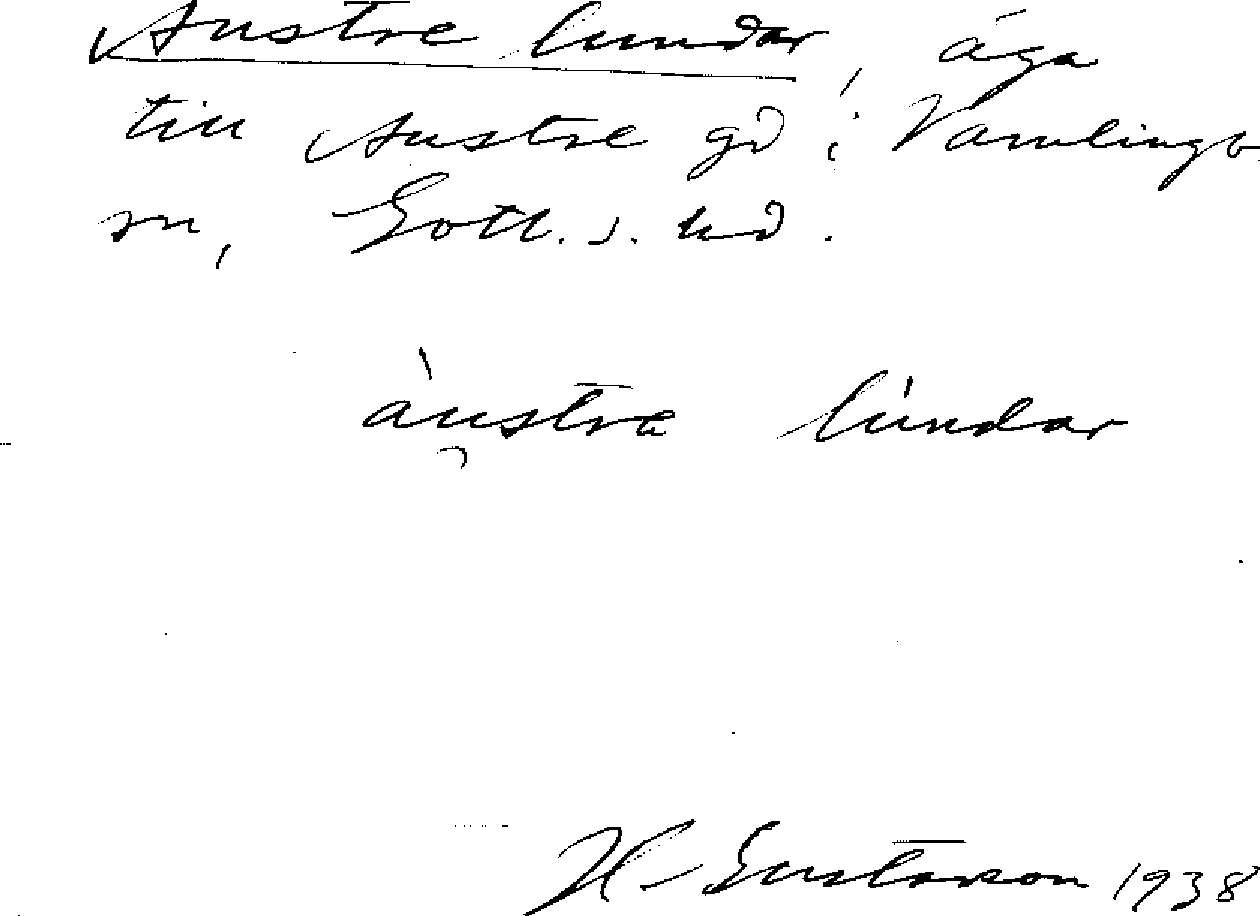 Austre lundar, äga
till Austre gd i Vamlingb
sn, Gotl. s. hd.
àu̯stra lúndar
H. Gustavson 1938